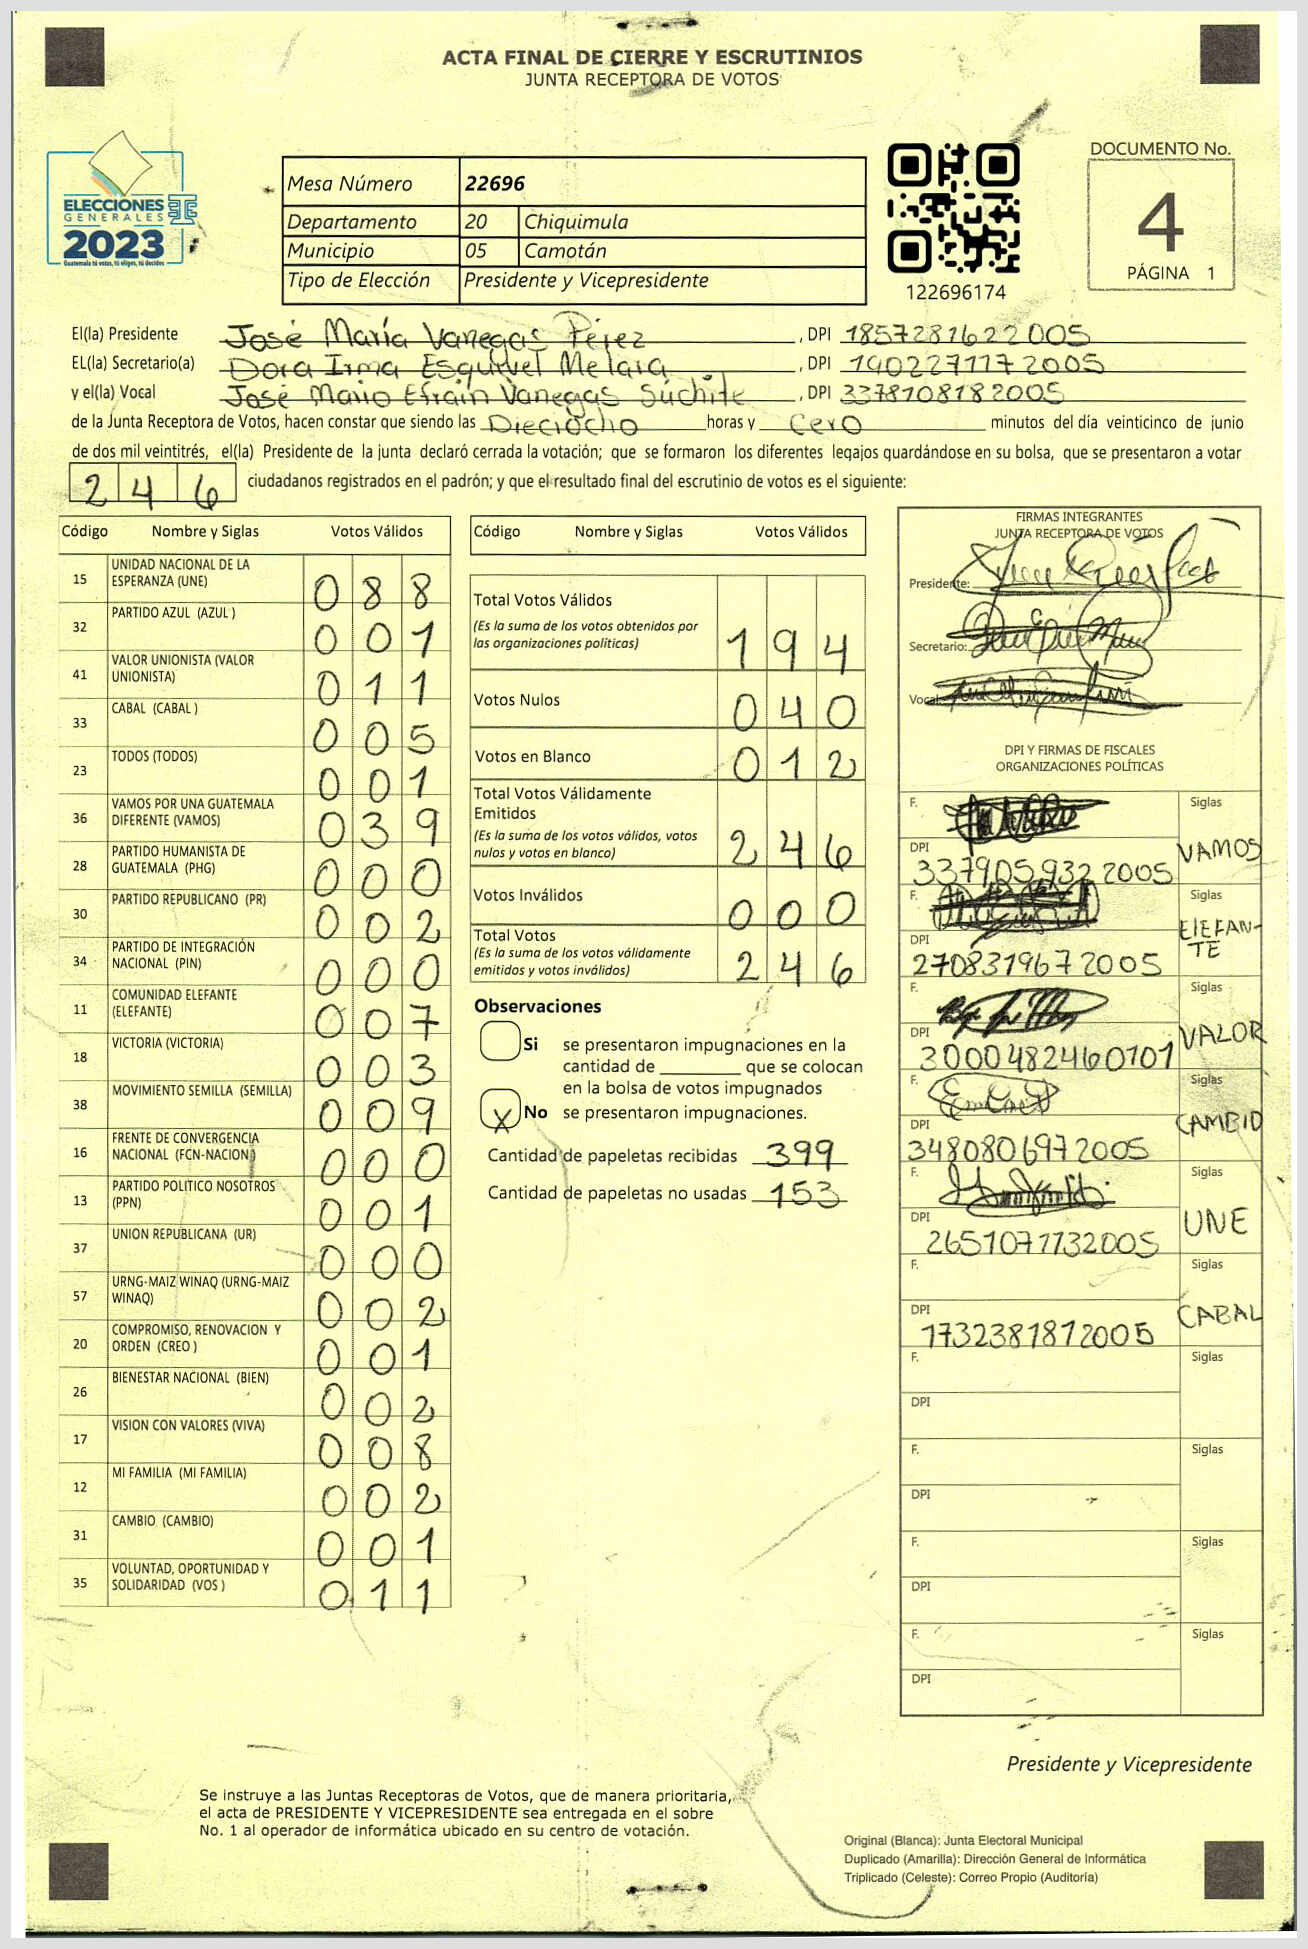 ACTA FINAL DE CIERRE Y ESCRUTINIOS
JUNTA RECEPTORA DE VOTOS
ELECCIONES
GENERALES
2023
Guatemala tú votas, tú eliges, tú decides
Mesa Número 22696
Departamento 20 Chiquimula
Municipio 05 Camotán
Tipo de Elección Presidente y Vicepresidente
122696174
DOCUMENTO No.
4
PÁGINA 1
El(la) Presidente José María Vanegas Pérez, DPI 1857281622005
EL(la) Secretario(a) Dora Irma Esquivel Melara, DPI 1902271172005
y el(la) Vocal José Mario Efraín Vanegas Súchite, DPI 3378108182005
de la Junta Receptora de Votos, hacen constar que siendo las Dieciocho horas y cero minutos del día veinticinco de junio
de dos mil veintitrés, el(la) Presidente de la junta declaró cerrada la votación; que se formaron los diferentes legajos guardándose en su bolsa, que se presentaron a votar
246 ciudadanos registrados en el padrón; y que el resultado final del escrutinio de votos es el siguiente:
Código Nombre y Siglas Votos Válidos
15 UNIDAD NACIONAL DE LA ESPERANZA (UNE) 088
32 PARTIDO AZUL (AZUL ) 001
41 VALOR UNIONISTA (VALOR UNIONISTA) 011
33 CABAL (CABAL ) 005
23 TODOS (TODOS) 001
36 VAMOS POR UNA GUATEMALA DIFERENTE (VAMOS) 039
28 PARTIDO HUMANISTA DE GUATEMALA (PHG) 000
30 PARTIDO REPUBLICANO (PR) 002
34 PARTIDO DE INTEGRACIÓN NACIONAL (PIN) 000
11 COMUNIDAD ELEFANTE (ELEFANTE) 007
18 VICTORIA (VICTORIA) 003
38 MOVIMIENTO SEMILLA (SEMILLA) 009
16 FRENTE DE CONVERGENCIA NACIONAL (FCN-NACION) 000
13 PARTIDO POLITICO NOSOTROS (PPN) 001
37 UNION REPUBLICANA (UR) 000
57 URNG-MAIZ WINAQ (URNG-MAIZ WINAQ) 002
20 COMPROMISO, RENOVACION Y ORDEN (CREO ) 001
26 BIENESTAR NACIONAL (BIEN) 002
17 VISION CON VALORES (VIVA) 008
12 MI FAMILIA (MI FAMILIA) 002
31 CAMBIO (CAMBIO) 001
35 VOLUNTAD, OPORTUNIDAD Y SOLIDARIDAD (VOS ) 011
Código Nombre y Siglas Votos Válidos
Total Votos Válidos
(Es la suma de los votos obtenidos por
las organizaciones políticas) 194
Votos Nulos 040
Votos en Blanco 012
Total Votos Válidamente
Emitidos
(Es la suma de los votos válidos, votos
nulos y votos en blanco) 246
Votos Inválidos 000
Total Votos
(Es la suma de los votos válidamente
emitidos y votos inválidos) 246
Observaciones
Si se presentaron impugnaciones en la
cantidad de ________ que se colocan
en la bolsa de votos impugnados
X No se presentaron impugnaciones.
Cantidad de papeletas recibidas 399
Cantidad de papeletas no usadas 153
FIRMAS INTEGRANTES
JUNTA RECEPTORA DE VOTOS
Presidente:
Secretario:
Vocal
DPI Y FIRMAS DE FISCALES
ORGANIZACIONES POLÍTICAS
F. Siglas
VAMOS
DPI 3379059322005
F. Siglas
ElEFAN-
TE
DPI 2708319672005
F. Siglas
VALOR
DPI 3000482460101
F. Siglas
CAMBIO
DPI 3480806972005
F. Siglas
UNE
DPI 2651071132005
F. Siglas
CABAL
DPI 1732381812005
F. Siglas
DPI
F. Siglas
DPI
F. Siglas
DPI
F. Siglas
DPI
Presidente y Vicepresidente
Se instruye a las Juntas Receptoras de Votos, que de manera prioritaria,
el acta de PRESIDENTE Y VICEPRESIDENTE sea entregada en el sobre
No. 1 al operador de informática ubicado en su centro de votación.
Original (Blanca): Junta Electoral Municipal
Duplicado (Amarilla): Dirección General de Informática
Triplicado (Celeste): Correo Propio (Auditoría)